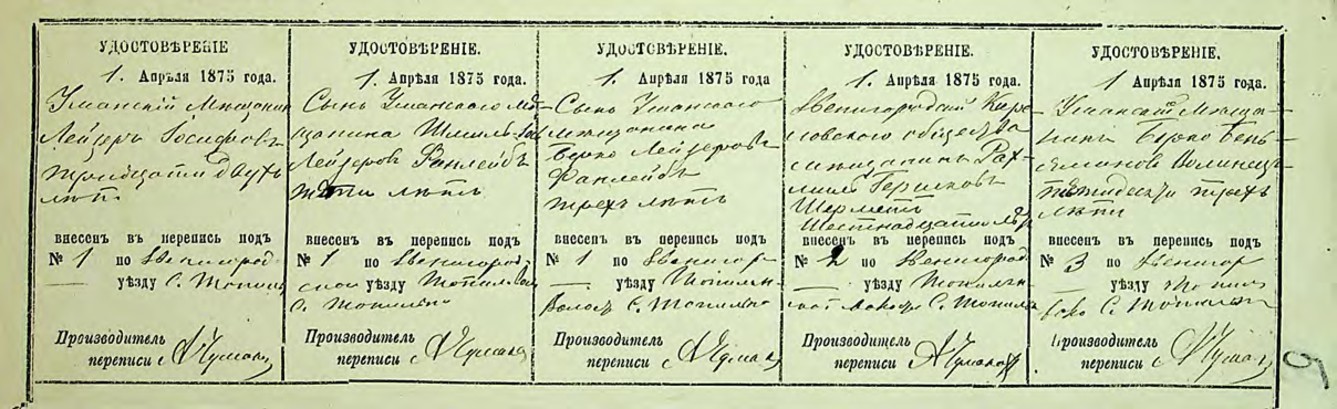 УДОСТОВѢРЕНІЕ
1. Апрѣля 1875 года.
Уманскій Мѣщанин
Лейзеръ Іосифовъ
тридцати двухъ
лѣт.
внесенъ въ перепись подъ
№ 1 по Звенигород
уѣзду С. Топил
Производитель
переписи
УДОСТОВѢРЕНІЕ.
1. Апрѣля 1875 года.
Сынъ Уманскаго Мѣ-
щанина Шмиль
Лейзеровъ Факлейбъ
пяти лѣтъ
внесенъ въ перепись подъ
№ 1 по Звенигород-
скои уѣзду Топил
С. Топильно
Производитель
переписи
УДОСТОВѢРЕНІЕ.
1. Апрѣля 1875 года
Сынъ Уманскаго
мѣщанина
Берко Лейзеровъ
Факлейбъ
трехъ лѣтъ
внесенъ въ перепись подъ
№ 1 по Звенигор
уѣзду Топильн
С. Топильно
Производитель
переписи
УДОСТОВѢРЕНІЕ.
1. Апрѣля 1875 года.
Звенигородский
общества
мѣщанинъ Рах-
миль Гершковъ
Шерметъ
Шестнадцати лѣт
внесенъ въ перепись подъ
№ 2 по Звенигород
уѣзду Топильн
С. Топильн
Производитель
переписи
УДОСТОВѢРЕНІЕ.
1 Апрѣля 1875 года.
Уманскій Мѣща-
нинъ Берко Бень-
яминовъ
трехъ
лѣтъ
внесенъ въ перепись подъ
№ 3 по Звенигор
уѣзду Топил
С. Топильн
Производитель
переписи